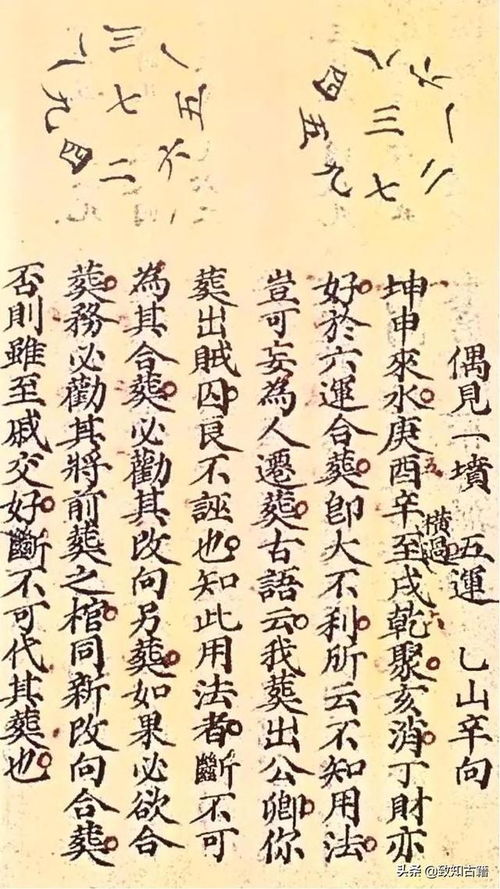 四 八 六
五 三 一
九 七 二
八 三 一
九 七 五
四 二 六
偶見一墳 五運 乙山辛向
坤申來水庚酉辛至戌乾聚亥消丁財亦
橫過
好於六運合葬即大不利所云不知用法
豈可妄為人遷葬古語云我葬出公卿你
葬出賊囚良不誣也知此用法者斷不可
為其合葬必勸其改向另葬如果必欲合
葬務必勸其將前葬之棺同新改向合葬
否則雖至戚交好斷不可代其葬也
头条 @致知古籍